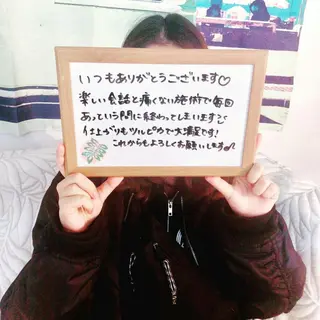 いつもありがとうございます♡
楽しい会話と痛くない施術で毎回
あっという間に終わってしまいます
仕上がりもツルピカで大満足です!
これからもよろしくお願いします♪